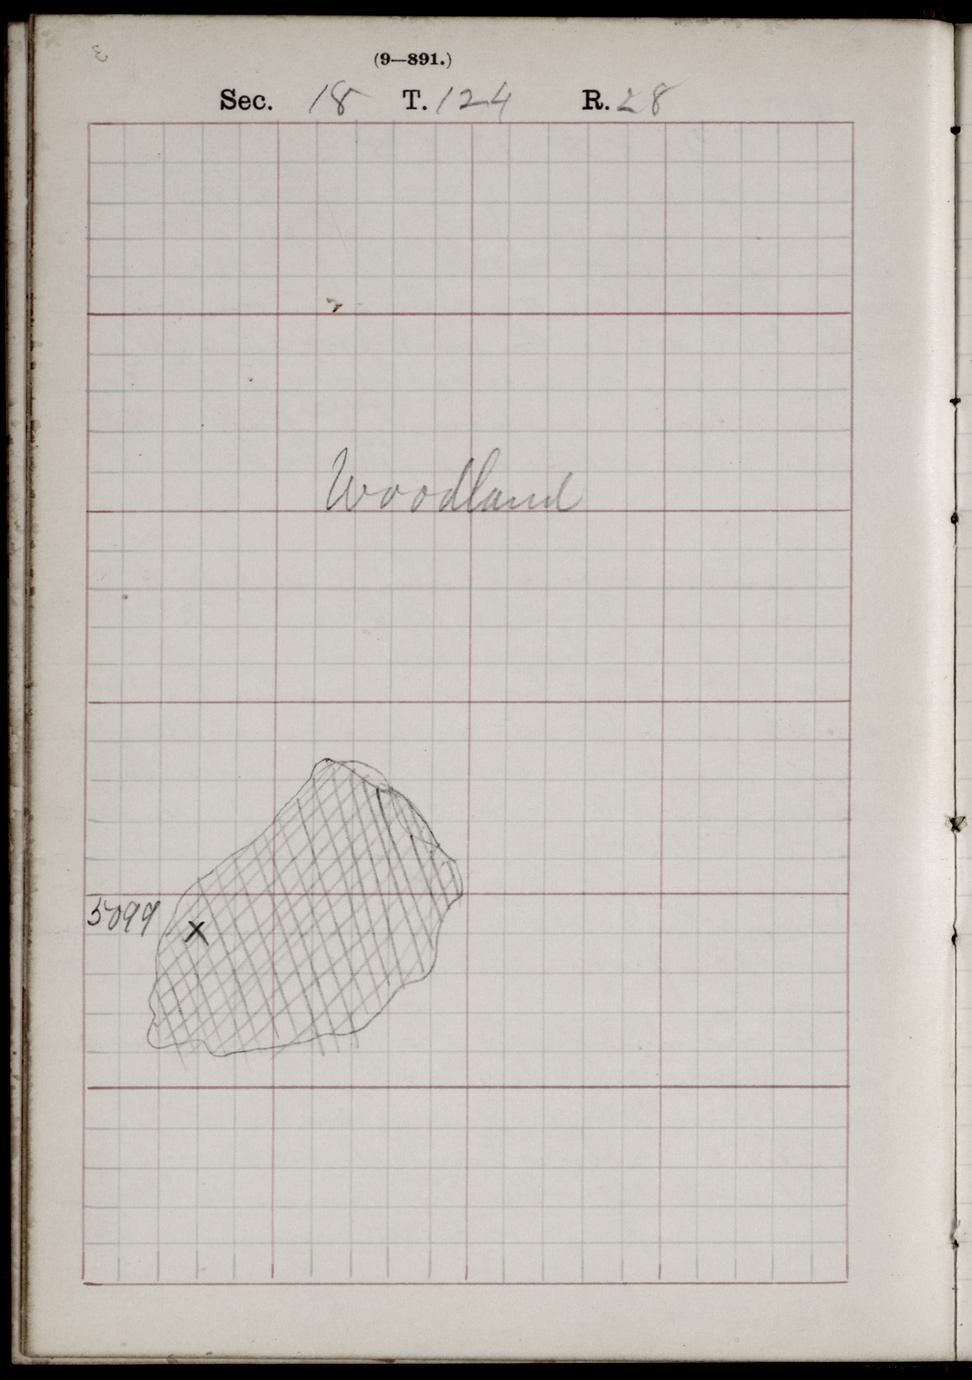 3
(9—891.)
Sec. 18 T. 124 R. 28
Woodland
5099
X